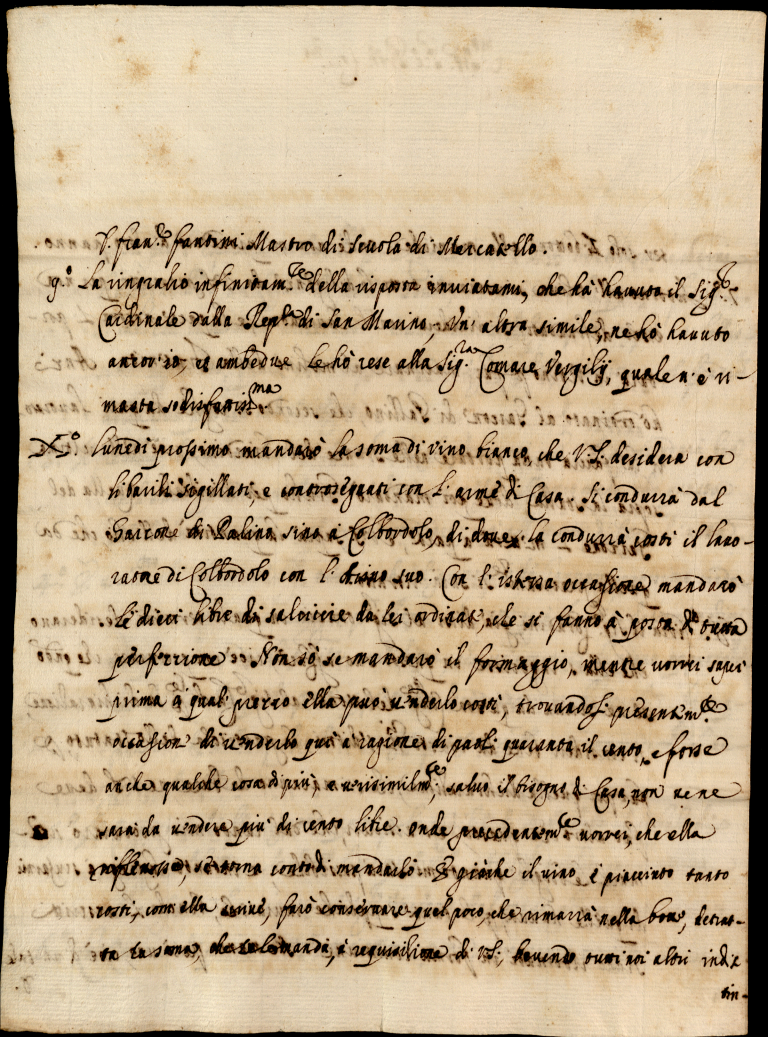 S. Fran.co Fantini Mastro di Scuola di Mercatello.
9.o La ringratio infinitam.te della risposta inviatami, che hà havuta il Sig.r
Cardinale dalla Rep.ca di San Marino, Un' altra simile, ne hò havuto
ancor io, et ambedue le hò rese alla Sig.ra Comare Vergilij, quale n' è ri-
masta sodisfatis.ma
X.o lunedì prossimo mandarò la soma di vino bianco che V.S. desidera con
li barili sigillati, e contrasegnati con l' arme di Casa. Si condurrà dal
Garzone di Palino sino à Colbordolo, di dove la condurrà costì il lavo-
ratore di Colbordolo con l' Asino suo. Con l' istessa occasione mandarò
le dieci libre di salciccie da lei ordinate, che si fanno à posta di tutta
perfezzione. Non sò se mandarò il formaggio, mentre vorrei saper
prima à qual prezzo ella può venderlo costì, trovandosi presentem.te
occasion di venderlo quì à ragione di paoli quaranta il cento, e forse
anche qualche cosa di più; e verisimilm.te, salvo il bisogno di Casa, non ve ne
sarà da vendere più di cento libre. onde precedentem.te vorrei, che ella
riflettesse, se torna conto di mandarlo. E giàche il vino è piacciuto tanto
costì, com' ella scrive, farò conservare quel poco, che rimarrà nella botte, detrat-
ta la soma, che le manda, à requisitione di V.S., bevendo tutti noi altri indis
tin-